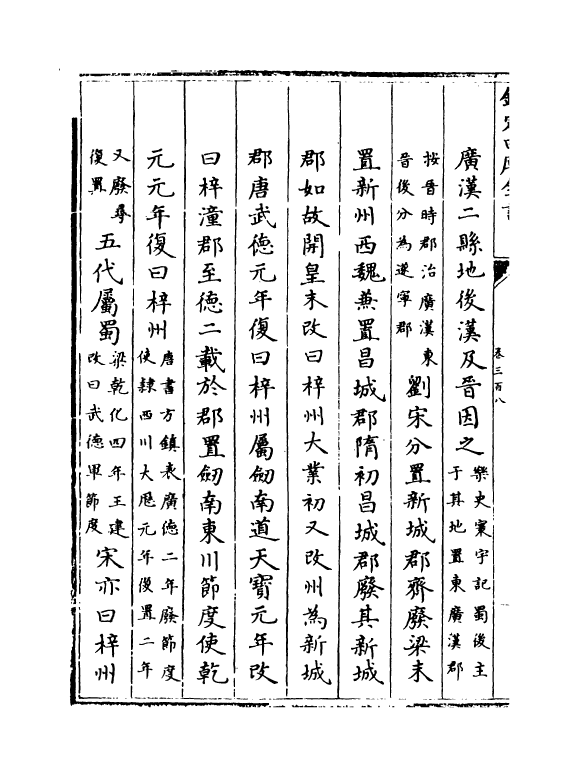 欽定四庫全書
卷三百八
廣漢二縣地後漢及晉因之樂史寰宇記蜀後主于其地置東廣漢郡
按晉時郡治廣漢東晉後分為遂寧郡劉宋分置新城郡齊廢梁末
置新州西魏兼置昌城郡隋初昌城郡廢其新城
郡如故開皇末改曰梓州大業初又改州為新城
郡唐武德元年復曰梓州屬劒南道天寶元年改
曰梓潼郡至德二載於郡置劒南東川節度使乾
元元年復曰梓州唐書方鎮表廣德二年廢節度使隸西川大厯元年復置二年
又廢尋復置五代屬蜀梁乾化四年王建改曰武德軍節度宋亦曰梓州